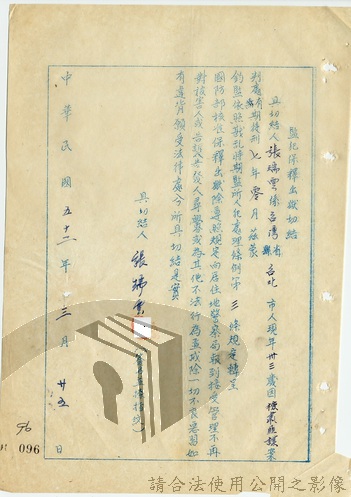 監犯保釋出獄切結
具切結人張瑞雲係台灣省台北市人現年卅三歲因懲
判處有期徒刑七年零月茲蒙
鈞監依照戡亂時期監所人犯處理條例第三條規定轉呈
國防部核准保釋出獄除遵照規定向居住地警察局報到接受管理不再
對被害人或告訴告發人尋釁或為其他不法行為並戒除一切不良嗜習如
有違背願受法律處分所具切結是實
具切結人張瑞雲
中華民國五十三年三月廿五日
096
請合法使用公開之影像